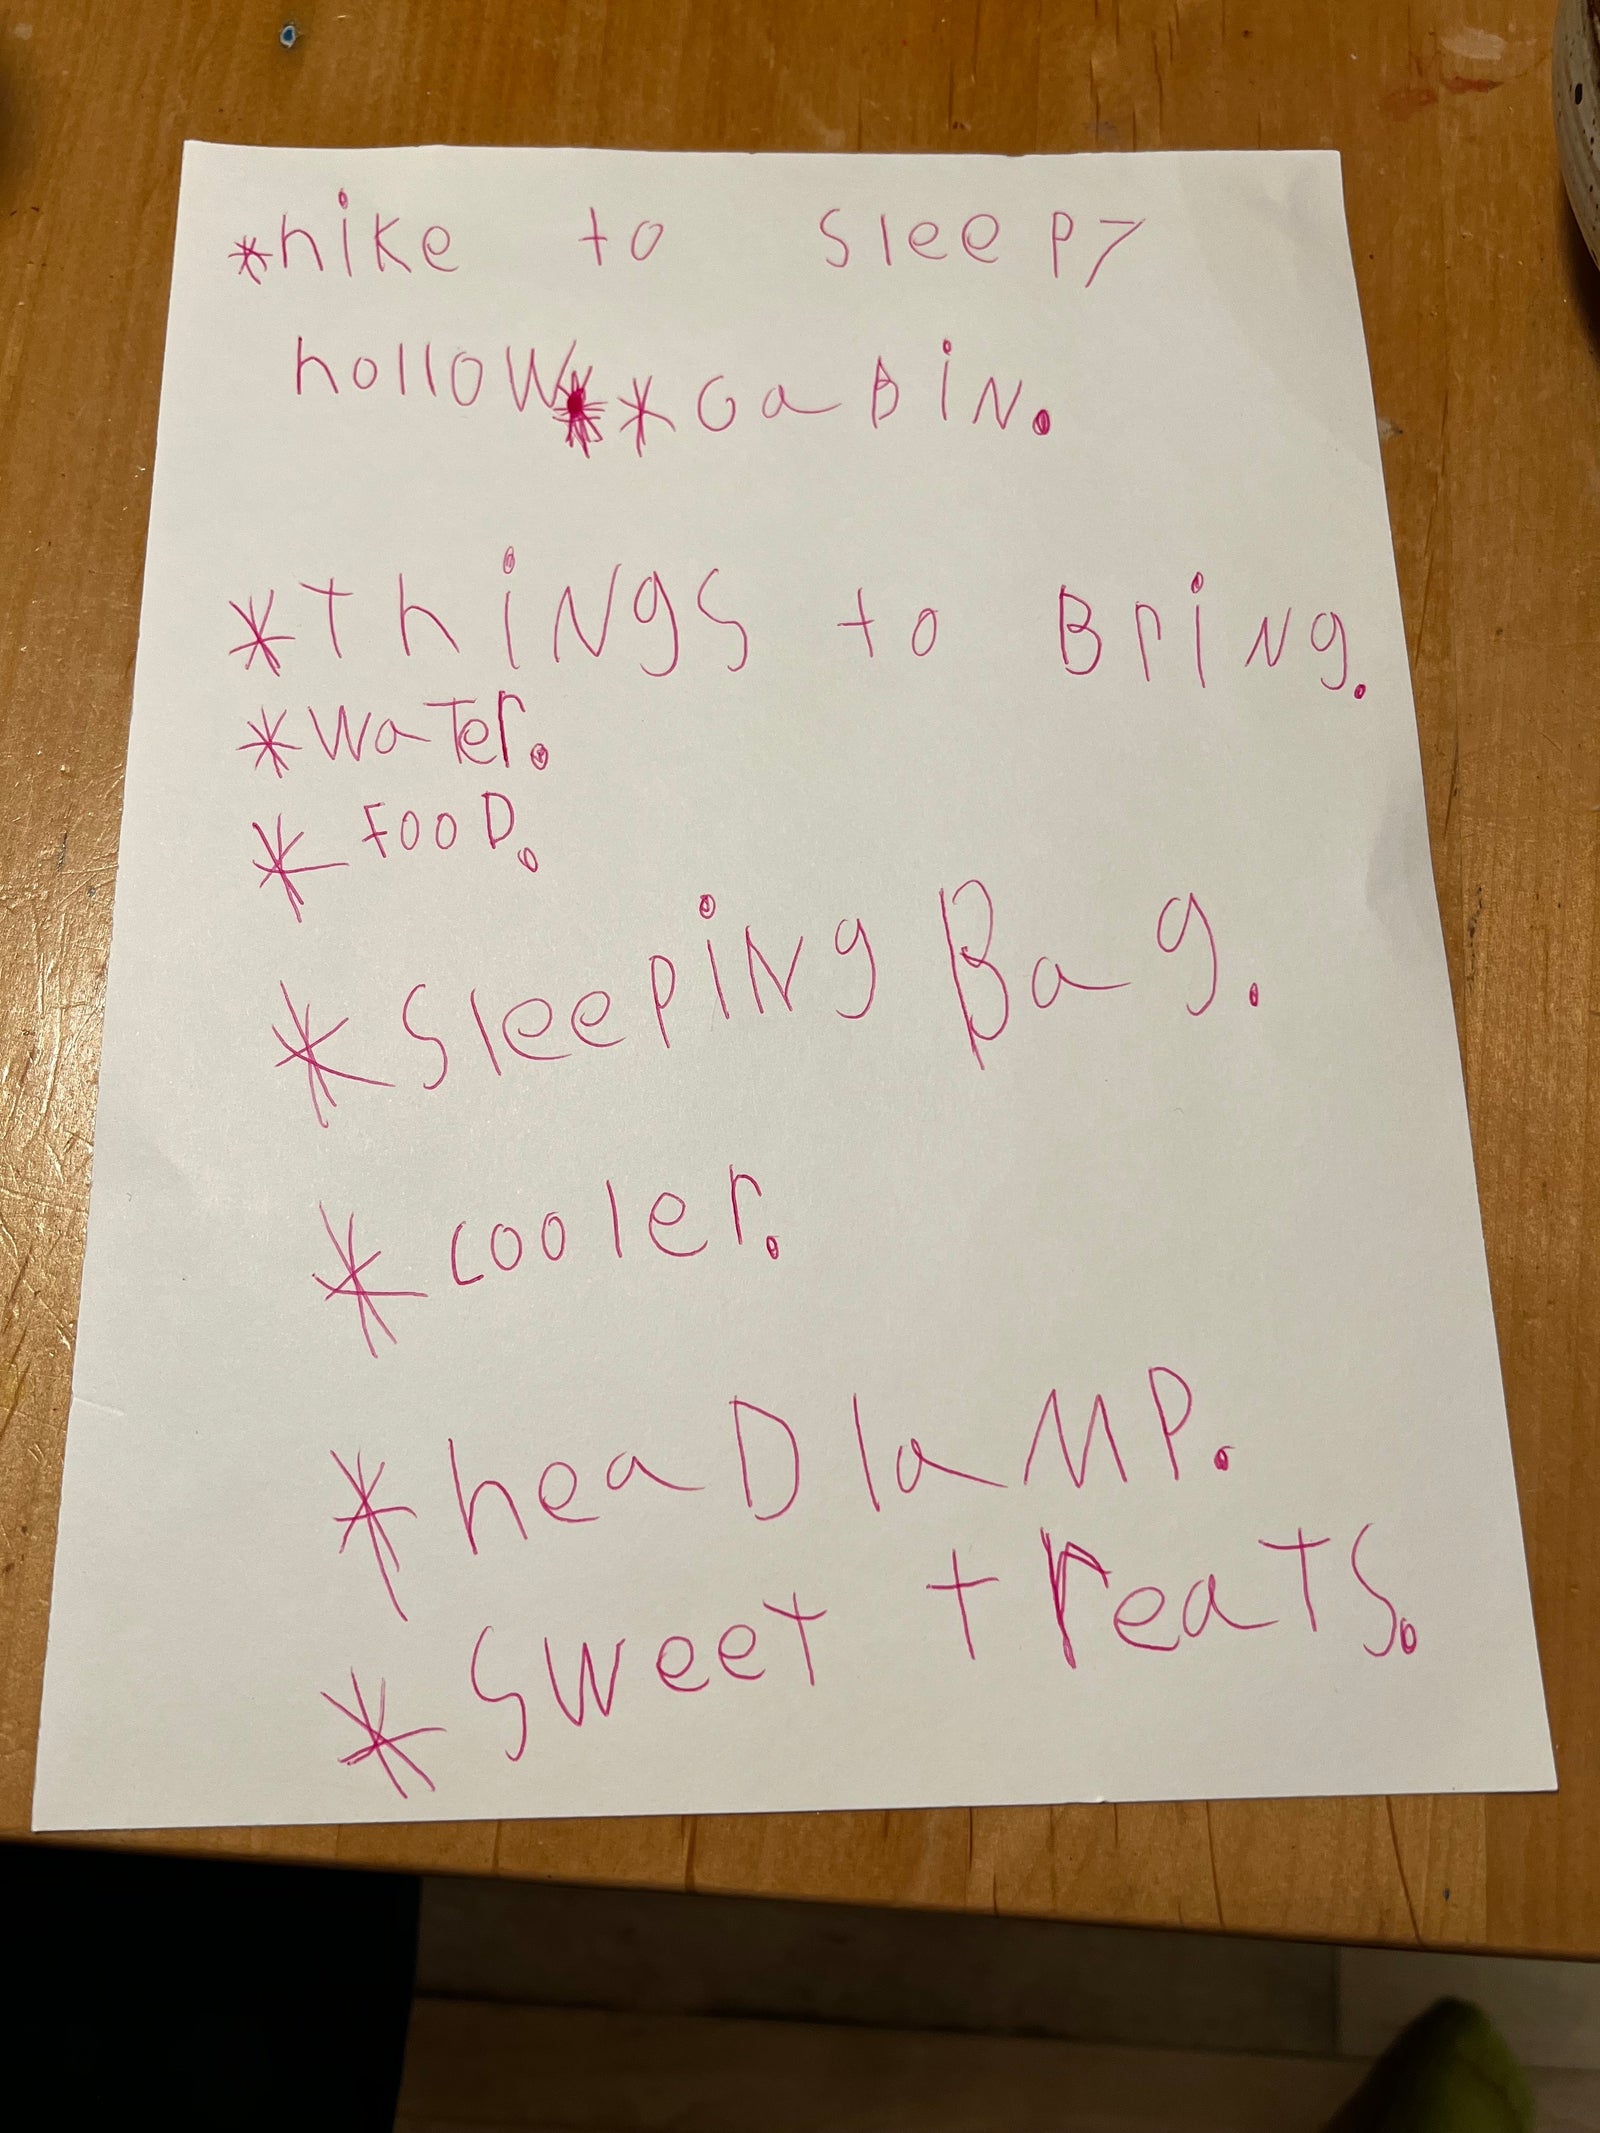 *hike to sleepy
hollow **caBiN.
*thiNgs to BriNg.
*waTer.
* FooD.
*SleepiNg Bag.
* cooler.
* heaDlaMP.
* Sweet treaTS.